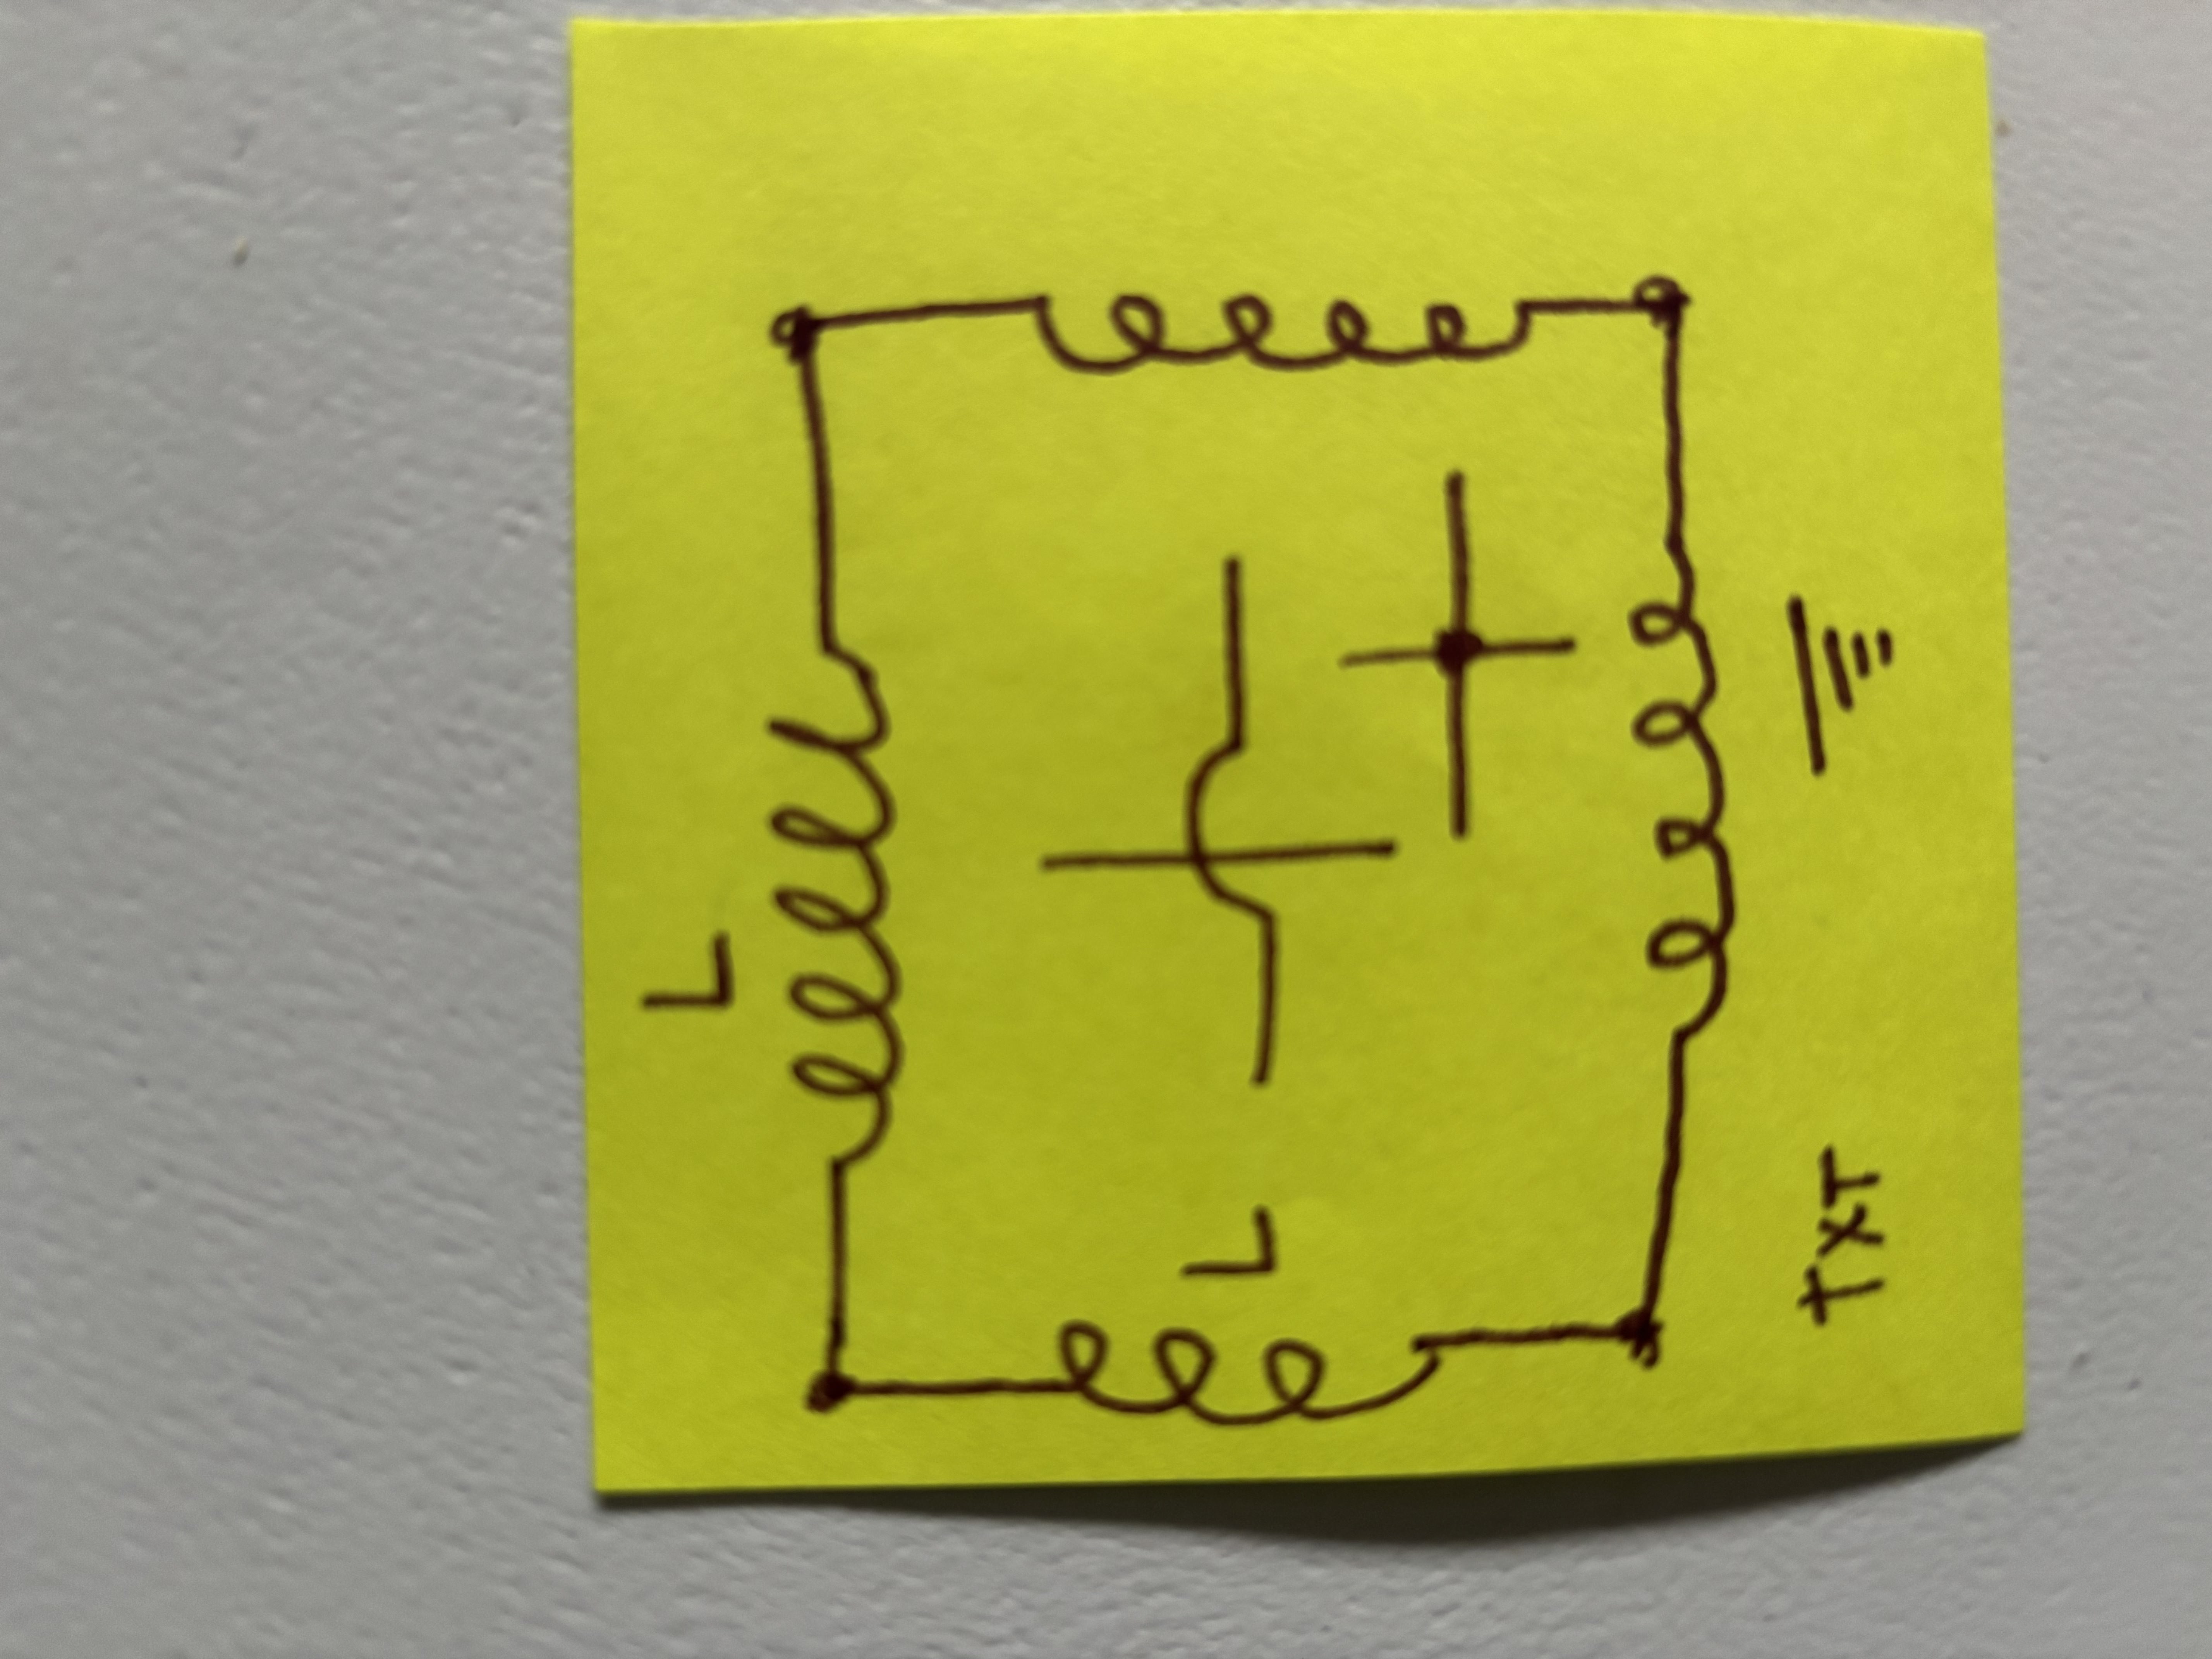 L
L
TXT